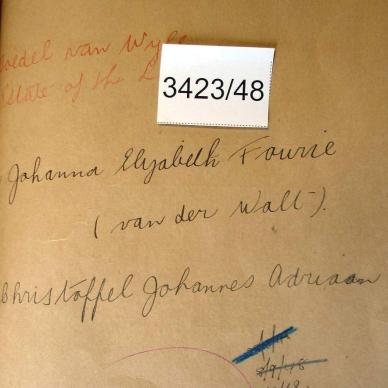 Boedel van Wyle
Estate of the L
3423/48
Johanna Elizabeth Fourie
(van der Walt).
Christoffel Johannes Adriaan
8/9/48